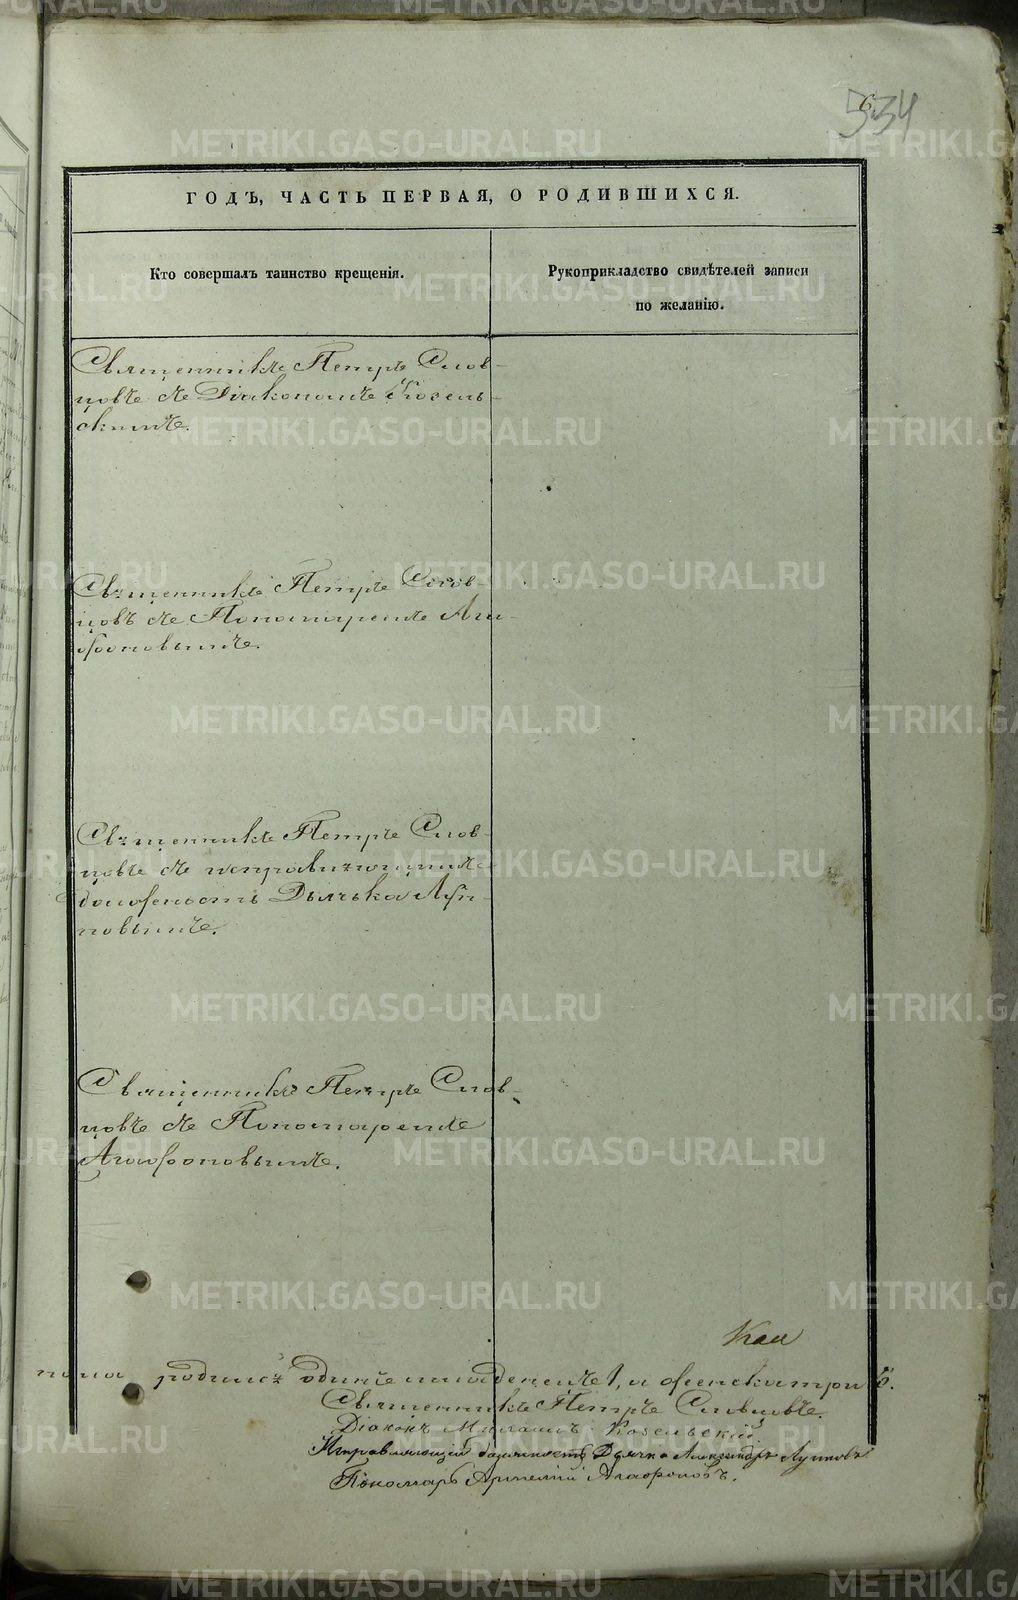 534
ГОДЪ, ЧАСТЬ ПЕРВАЯ, О РОДИВШИХСЯ.
Кто совершалъ таинство крещенія.
Рукоприкладство свидѣтелей записи
по желанію.
Священникъ Петръ Слов-
цовъ съ Діакономъ Козель-
скимъ.
Священникъ Петръ Слов-
цовъ съ Пономаремъ Ага-
фоновымъ.
Священникъ Петръ Слов-
цовъ съ исправляющимъ
должность Дьячка Луп-
повымъ.
Священникъ Петръ Слов-
цовъ съ Пономаремъ
Агафоновымъ.
родился одинъ младенецъ 1, а женска три 3.
Священникъ Петръ Словцовъ.
Діаконъ Козельскій
Исправляющій должность Дьячка Александръ Лупповъ
Пономарь Артемій Агафоновъ.
METRIKI.GASO-URAL.RU